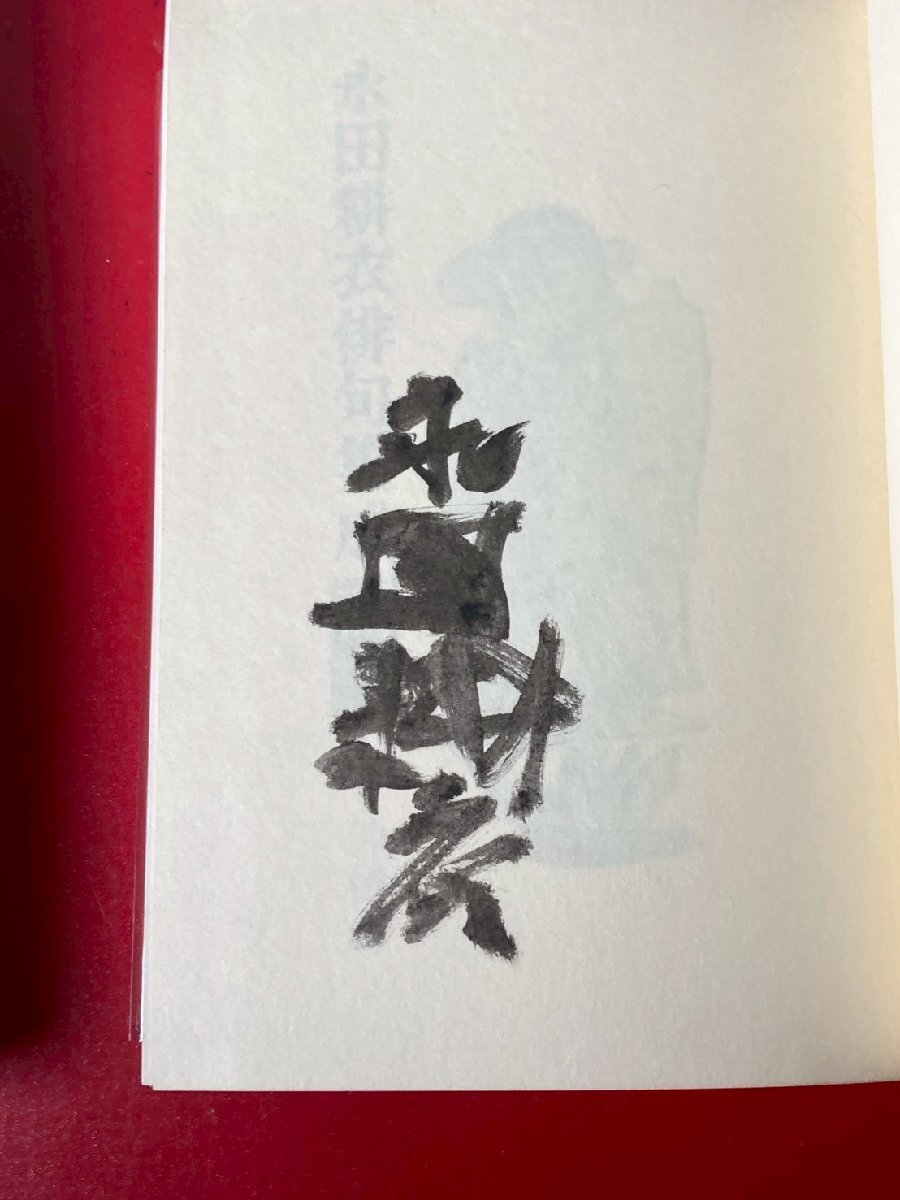 永田耕衣
永田耕衣俳句